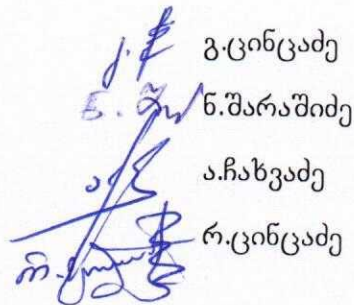 გ.ცინცაძე
ნ.შარაშიძე
ა.ჩახვაძე
რ.ცინცაძე